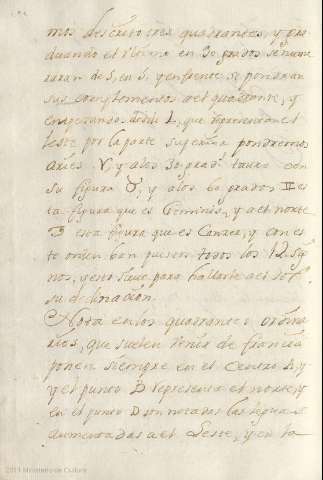 mos descrito tres quadrantes, y gra
duando el ultimo en 30 grados se nume
raran de 5, en 5. y enfrente se pondran
sus complementos a el quadrante, y
empezando desde L, que representa el
leste por la parte superior pondremos
aries ♈, y a los 30 grad.ˢ tauro con
su figura ♉, y a los 60 grados ♊ es
ta figura que es Geminis, y a el norte
♋ esta figura que es Cancer, y con es
te orden ban puestos todos los 12 Sig
nos, y esto sirve para hallarle a el sol
su declinacion.
Nota en los quadrantes ordina
rios, que suelen venir de francia
ponen siempre en el centro A, y
y el punto B representa el norte, y
en el punto D son notadas las leguas
aumentadas a el Leste, y en la
2011 Ministerio de Cultura